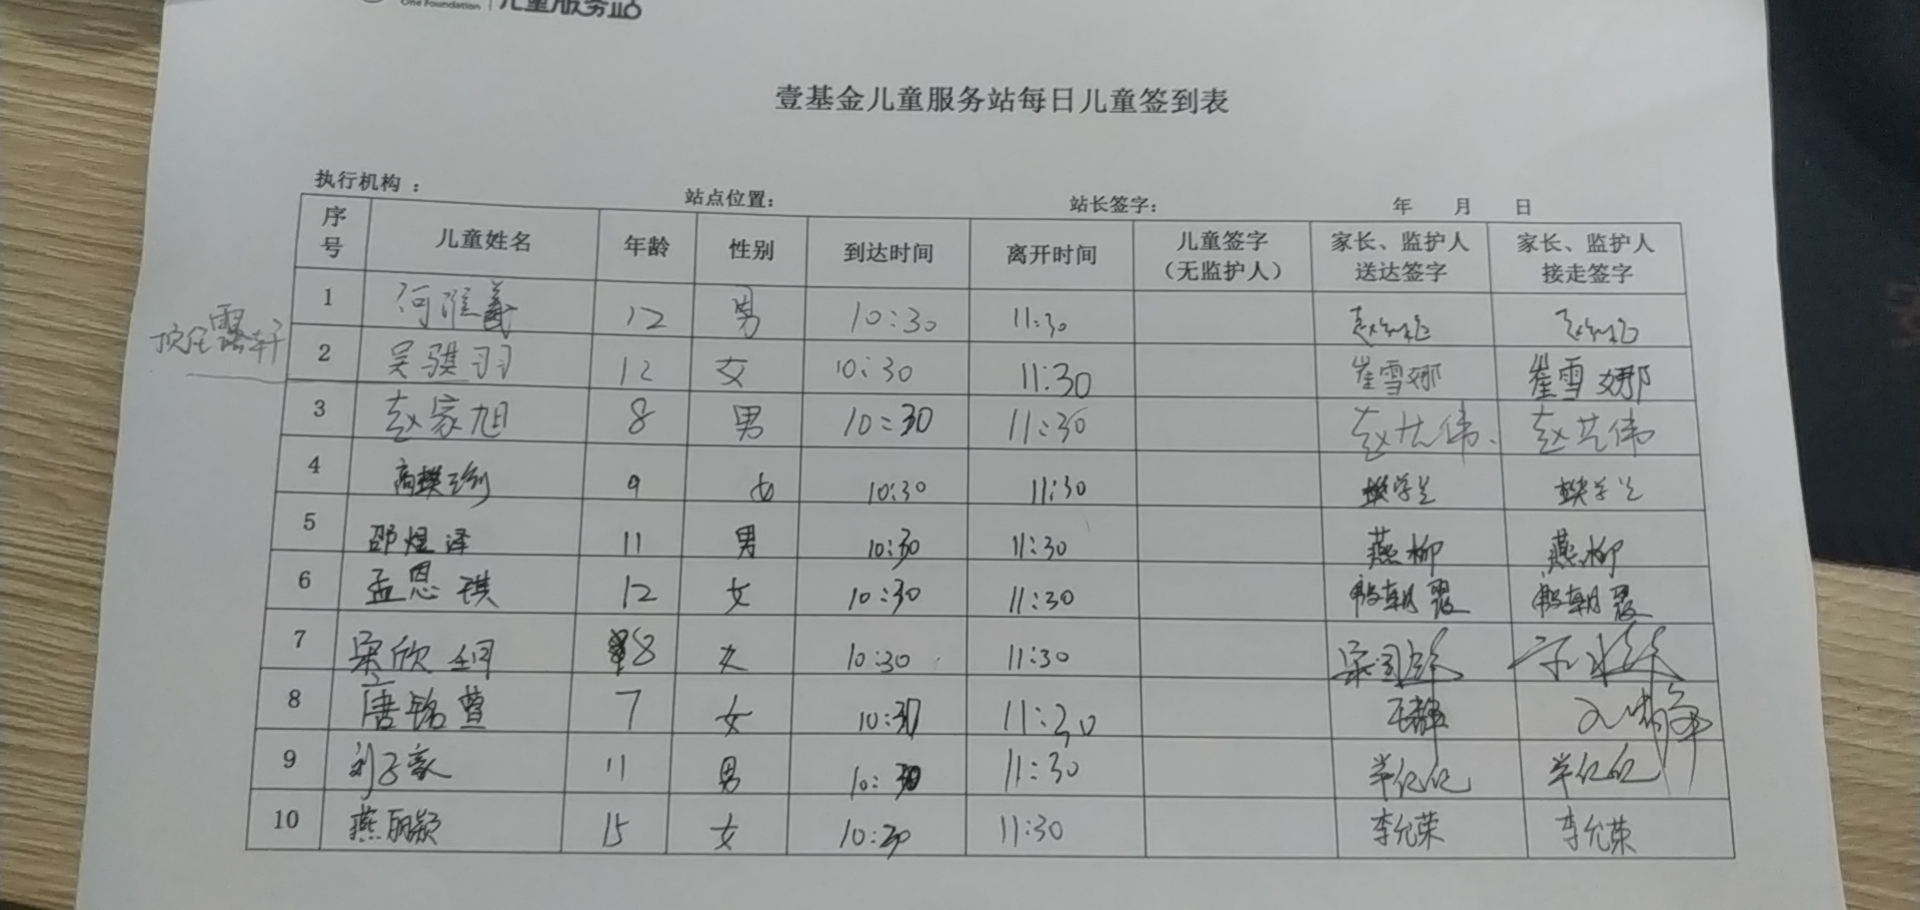 One Foundation | 儿童服务站
壹基金儿童服务站每日儿童签到表
执行机构： 站点位置： 站长签字： 年 月 日
序号 儿童姓名 年龄 性别 到达时间 离开时间 儿童签字（无监护人） 家长、监护人送达签字 家长、监护人接走签字
1 何淮羲 12 男 10:30 11:30
2 吴骐羽 12 女 10:30 11:30 崔雪娜 崔雪娜
3 赵家旭 8 男 10:30 11:30 赵艺伟 赵艺伟
4 9 女 10:30 11:30
5 邵煜泽 11 男 10:30 11:30 燕柳 燕柳
6 孟恩祺 12 女 10:30 11:30 殷朝霞 殷朝霞
7 8 女 10:30 11:30
8 唐铭萱 7 女 10:30 11:30 王静
9 刘子豪 11 男 10:30 11:30
10 燕丽颖 15 女 10:30 11:30 李允荣 李允荣